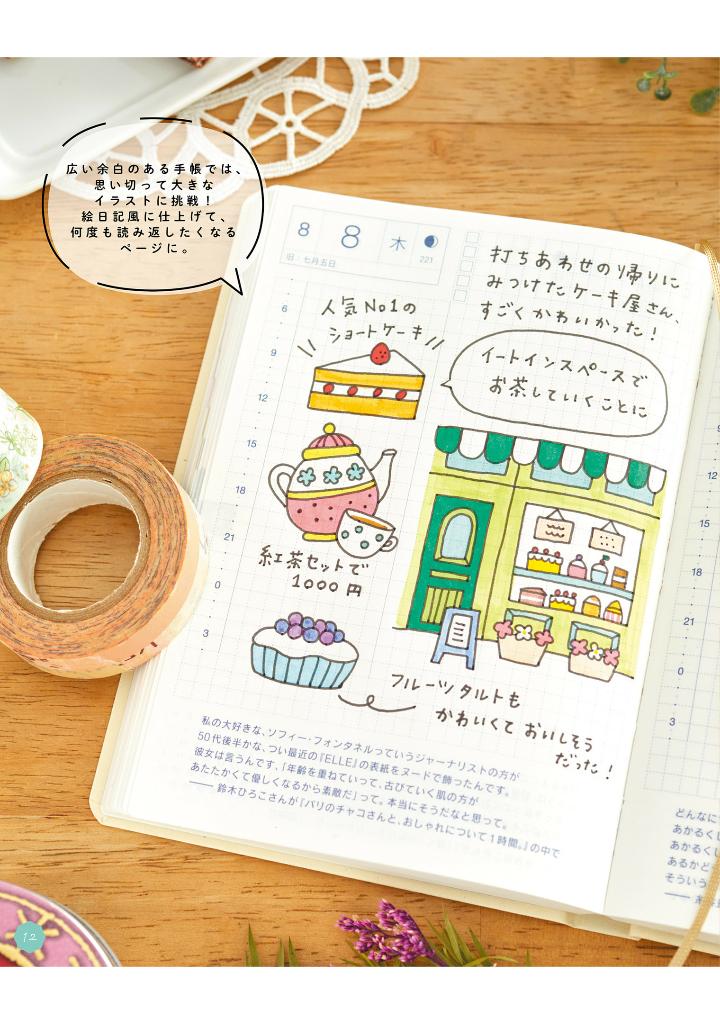 広い余白のある手帳では、
思い切って大きな
イラストに挑戦！
絵日記風に仕上げて、
何度も読み返したくなる
ページに。
8 8 木
旧：七月五日 221
打ちあわせの帰りに
みつけたケーキ屋さん、
すごくかわいかった！
人気No1の
ショートケーキ
イートインスペースで
お茶していくことに
6
9
12
15
18
21
0
3
紅茶セットで
1000円
フルーツタルトも
かわいくておいしそう
だった！
私の大好きな、ソフィー・フォンタネルっていうジャーナリストの方が
50代後半かな、つい最近の『ELLE』の表紙をヌードで飾ったんです。
彼女は言うんです、「年齢を重ねていって、古びていく肌の方が
あたたかくて優しくなるから素敵だ」って。本当にそうだなと思って。
──鈴木ひろこさんが『パリのチャコさんと、おしゃれについて1時間。』の中で
9
12
15
18
21
0
3
どんなに
あかるくし
あかるくし
あるかど
そういう
12